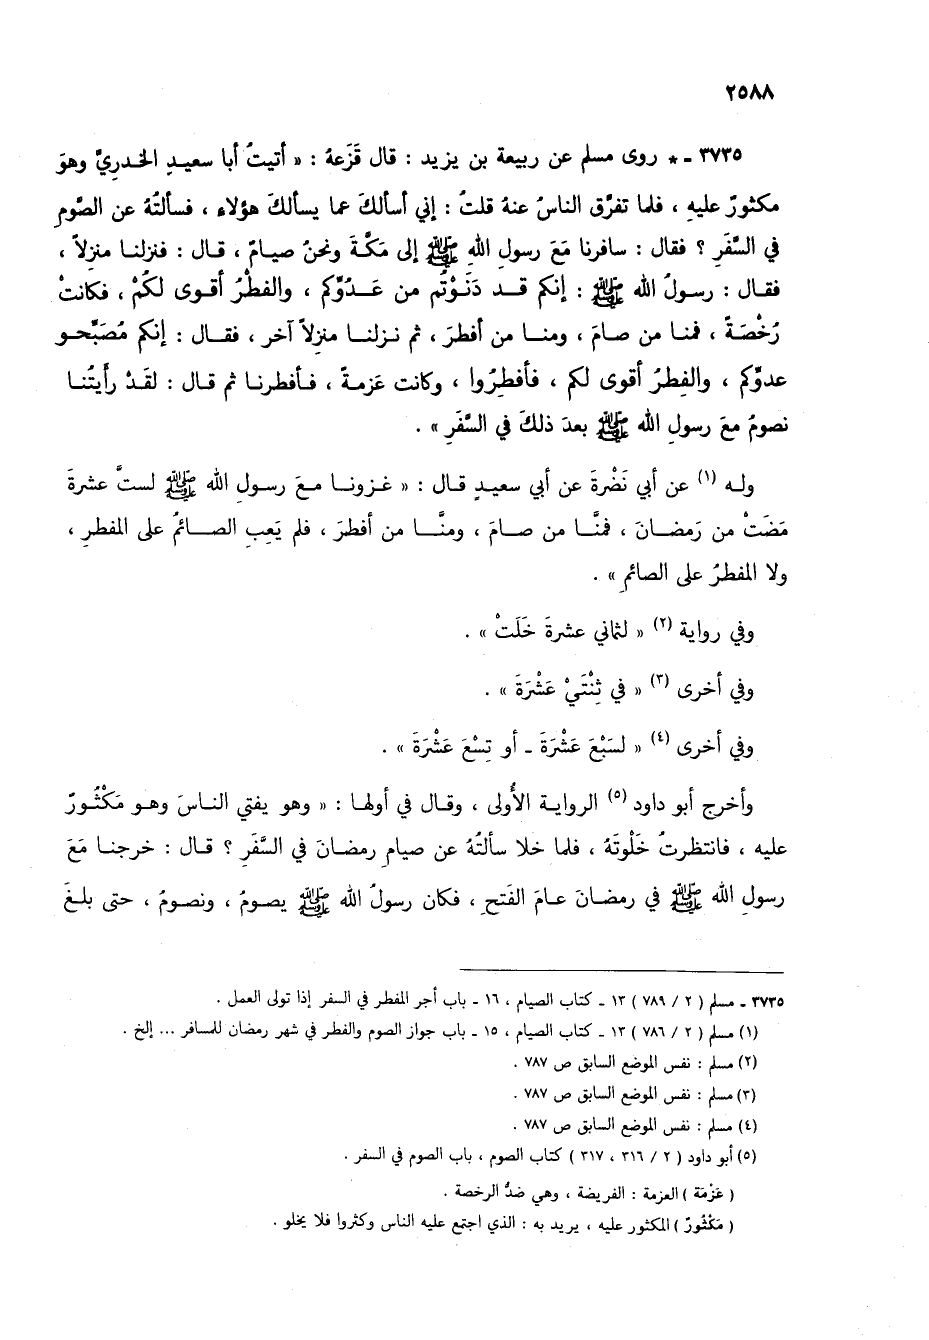 ٢٥٨٨
٣٧٣٥ - * روى مسلم عن ربيعة بن يزيد : قال قَزَعةُ : « أتيتُ أبا سعيدٍ الخدريَّ وهوَ
مكثورٌ عليهِ ، فلما تفرَّق الناسُ عنهُ قلتُ : إني أسألكَ عما يسألكَ هؤلاء ، فسألتُهُ عن الصَّومِ
في السَّفَرِ ؟ فقال : سافرنا مَعَ رسولِ اللهِ ﷺ إلى مَكَّةَ ونحنُ صيامٌ ، قال : فنزلنا منزلاً ،
فقال : رسولُ الله ﷺ : إنكم قد دَنَوْتُم من عَدُوِّكم ، والفطْرُ أقوى لكُمْ ، فكانتْ
رُخْصَةً ، فمنا من صامَ ، ومنا من أفطرَ ، ثم نزلنا منزلاً آخر ، فقال : إنكم مُصَبِّحو
عدوِّكم ، والفِطرُ أقوى لكم ، فأفطِرُوا ، وكانت عَزمةً ، فأفطرنا ثم قال : لقَدْ رأيتُنا
نصومُ معَ رسولِ الله ﷺ بعدَ ذلكَ في السَّفَرِ » .
وله (١) عن أبي نَضْرةَ عن أبي سعيدٍ قال : « غزونا معَ رسولِ الله ﷺ لستَّ عشرةَ
مَضَتْ من رَمضانَ ، فمنَّا من صامَ ، ومنَّا من أفطرَ ، فلم يَعِبِ الصائمُ على المفطرِ ،
ولا المفطرُ على الصائمِ » .
وفي رواية (٢) « لثماني عشرةَ خَلَتْ » .
وفي أخرى (٣) « في ثِنْتَيْ عَشْرَةَ » .
وفي أخرى (٤) « لسَبْعَ عَشْرَةَ - أو تِسْعَ عَشْرَةَ » .
وأخرج أبو داود (٥) الرواية الأُولى ، وقال في أولها : « وهو يفتي الناسَ وهو مَكْثُورٌ
عليه ، فانتظرتُ خَلْوتَهُ ، فلما خلا سألتُهُ عن صيامِ رمضانَ في السَّفَرِ ؟ قال : خرجنا مَعَ
رسولِ الله ﷺ في رمضانَ عامَ الفَتحِ ، فكان رسولُ الله ﷺ يصومُ ، ونصومُ ، حتى بلغَ
٣٧٣٥ - مسلم ( ٢ / ٧٨٩ ) ١٣ - كتاب الصيام ، ١٦ - باب أجر المفطر في السفر إذا تولى العمل .
(١) مسلم ( ٢ / ٧٨٦ ) ١٣ - كتاب الصيام ، ١٥ - باب جواز الصوم والفطر في شهر رمضان للمسافر ... إلخ .
(٢) مسلم : نفس الموضع السابق ص ٧٨٧ .
(٣) مسلم : نفس الموضع السابق ص ٧٨٧ .
(٤) مسلم : نفس الموضع السابق ص ٧٨٧ .
(٥) أبو داود ( ٢ / ٣١٦ ، ٣١٧ ) كتاب الصوم ، باب الصوم في السفر .
( عَزْمَة ) العزمة : الفريضة ، وهي ضدُّ الرخصة .
( مَكْثُورٌ ) المكثور عليه ، يريد به : الذي اجتمع عليه الناس وكثروا فلا يخلو .